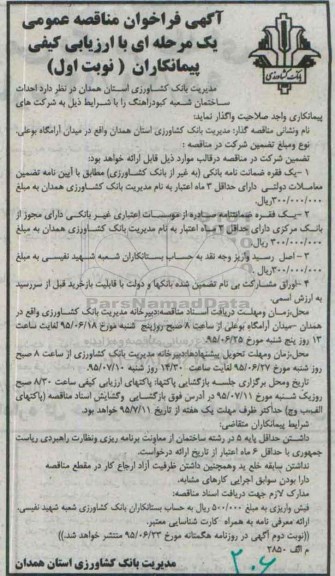 آگهی فراخوان مناقصه عمومی
یک مرحله ای با ارزیابی کیفی
پیمانکاران ( نوبت اول)
بانک کشاورزی
مدیریت بانک کشاورزی استان همدان در نظر دارد احداث
ساختمان شعبه کبودراهنگ را با شرایط ذیل به شرکت های
پیمانکاری واجد صلاحیت واگذار نماید:
نام ونشانی مناقصه گذار: مدیریت بانک کشاورزی استان همدان واقع در میدان آرامگاه بوعلی.
نوع ومبلغ تضمین شرکت در مناقصه :
تضمین شرکت در مناقصه درقالب موارد ذیل قابل ارائه خواهد بود:
۱ -یک فقره ضمانت نامه بانکی (به غیر از بانک کشاورزی) مطابق با آیین نامه تضمین
معاملات دولتی دارای حداقل ۳ ماه اعتبار به نام مدیریت بانک کشاورزی همدان به مبلغ
۳۰۰/۰۰۰/۰۰۰ریال.
۲ -یک فقره ضمانتنامه صادره از موسسات اعتباری غیر بانکی دارای مجوز از
بانک مرکزی دارای حداقل ۳ ماه اعتبار به نام مدیریت بانک کشاورزی همدان به مبلغ
۳۰۰/۰۰۰/۰۰۰ ریال.
۳ - اصل رسید واریز وجه نقد به حساب بستانکاران شعبه شهید نفیسی به مبلغ
۳۰۰/۰۰۰/۰۰۰ریال.
۴ -اوراق مشارکت بی نام تضمین شده بانکها و دولت با قابلیت بازخرید قبل از سررسید
به ارزش اسمی.
محل،زمان ومهلت دریافت اسناد مناقصه:دبیرخانه مدیریت بانک کشاورزی واقع در
همدان -میدان آرامگاه بوعلی از ساعت ۸ صبح روزپنج شنبه مورخ ۹۵/۰۶/۱۸ لغایت ساعت
۱۳ روز پنج شنبه مورخ ۹۵/۰۶/۲۵
محل،زمان ومهلت تحویل پیشنهادها:دبیرخانه مدیریت بانک کشاورزی از ساعت ۸ صبح
روز شنبه مورخ ۹۵/۰۶/۲۷ لغایت ساعت ۱۴/۳۰ روز شنبه ۹۵/۰۷/۱۰
تاریخ ومحل برگزاری جلسه بازگشایی پاکتها: پاکتهای ارزیابی کیفی ساعت ۸/۳۰ صبح
روزیک شنبه مورخ ۹۵/۰۷/۱۱ در آدرس فوق بازگشایی وگشایش اسناد مناقصه (پاکتهای
الف،ب وج) حداکثر ظرف مهلت یک هفته از تاریخ ۹۵/۷/۱۱ خواهد بود.
شرایط پیمانکاران متقاضی:
داشتن حداقل پایه ۵ در رشته ساختمان از معاونت برنامه ریزی ونظارت راهبردی ریاست
جمهوری با حداقل ۶ ماه اعتبار از تاریخ ارائه درخواست.
نداشتن سابقه خلع ید وهمچنین داشتن ظرفیت آزاد ارجاع کار در مقطع مناقصه
دارا بودن سوابق اجرایی کارهای مشابه.
مدارک لازم جهت دریافت اسناد مناقصه:
فیش واریزی به مبلغ ۵۰۰/۰۰۰ ریال به حساب بستانکاران بانک کشاورزی شعبه شهید نفیسی.
ارائه معرفی نامه به همراه کارت شناسایی معتبر.
((نوبت دوم آگهی در روزنامه هگمتانه مورخ ۹۵/۰۶/۲۳ منتشر خواهد شد.))
م الف ۲۸۵۰
مدیریت بانک کشاورزی استان همدان
ParsNamadData